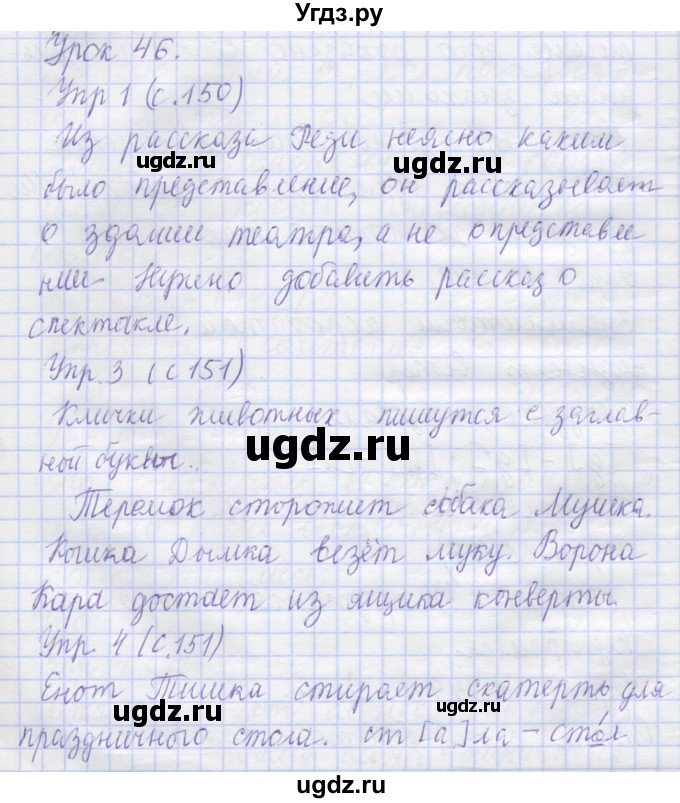 Угдз.ру
Урок 46.
Упр 1 (с.150)
Из рассказа Феди неясно каким
было представление, он рассказывает
о здании театра, а не о представле
нии. Нужно добавить рассказ о
спектакле.
Упр.3 (с 151)
Клички животных пишутся с заглав-
ной буквы.
Теремок сторожит собака Мушка.
Кошка Дымка везёт муку. Ворона
Кара достает из ящика конверты.
Упр. 4 (с.151)
Енот Тишка стирает скатерть для
праздничного стола. ст[а]ла - сто́л
ugdz.ru
ugdz.ru
ugdz.ru
ugdz.ru
ugdz.ru
ugdz.ru
ugdz.ru
ugdz.ru